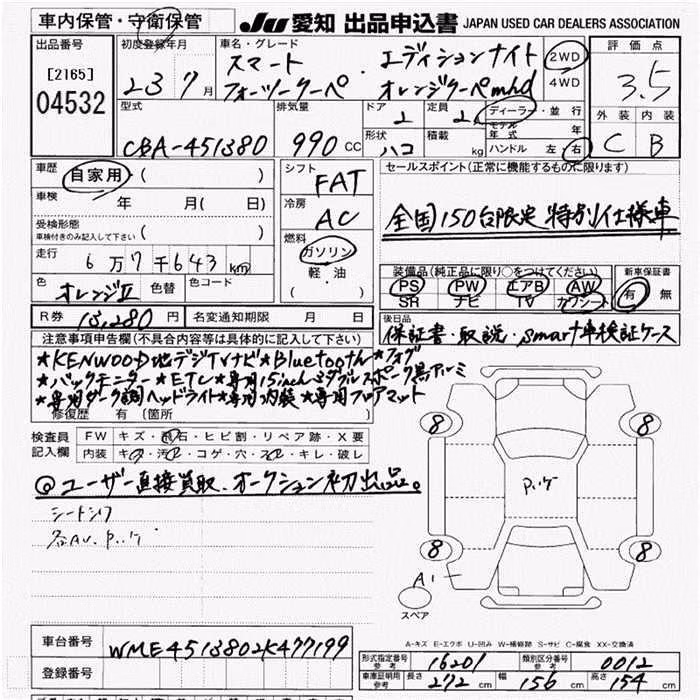 車内保管・守衛保管
JU 愛知 出品申込書 JAPAN USED CAR DEALERS ASSOCIATION
出品番号 [2165] 04532
初度登録年月 23 7月
車名・グレード スマート エディションナイト
フォーツークーペ オレンジクーペmhd
2WD 4WD
評価点 3.5
外装 内装
C B
型式 CBA-451380
排気量 990 CC
ドア 2
定員 2人
形状 ハコ
積載 kg
ディーラー・並行
モデル年式 年
ハンドル 左 右
車歴 自家用・( )
車検 年 月( 日)
受検形態 車検付きのみ記入して下さい ( )
走行 6万7千643km
色 オレンジII 色替 色コード ( )
R券 13,280円 名変通知期限 月 日
シフト FAT
冷房 AC
燃料 ガソリン 軽・油 ( )
セールスポイント(正常に機能するものに限ります)
全国150台限定 特別仕様車
装備品(純正品に限り○をつけてください)
PS PW エアB AW
SR ナビ TV カワシート
新車保証書 有 無
後日品
保証書・取説・smart車検証ケース
注意事項申告欄(不具合内容等は具体的に記入して下さい)
★KENWOOD地デジTVナビ★Bluetooth★フォグ
★バックモニター★ETC★専用15inch3ダブルスポーク黒アルミ
★専用ダーク調ヘッドライト★専用内装★専用フロアマット
修復歴 有 (箇所 )
検査員記入欄
FW キズ・飛石・ヒビ割・リペア跡・X要
内装 キズ・汚れ・コゲ・穴・スレ・キレ・破レ
◎ユーザー直接買取、オークション初出品。
シートシワ
8 8 8 8
A1
スペア
A-キズ E-エクボ U-凹み W-補修跡 S-サビ C-腐食 XX-交換済
車台番号 WME4513802K477199
登録番号
形式指定番号 参考 16201 類別区分番号 参考 0012
車庫証明用 参考 長さ 272 cm 幅 156 cm 高さ 154 cm